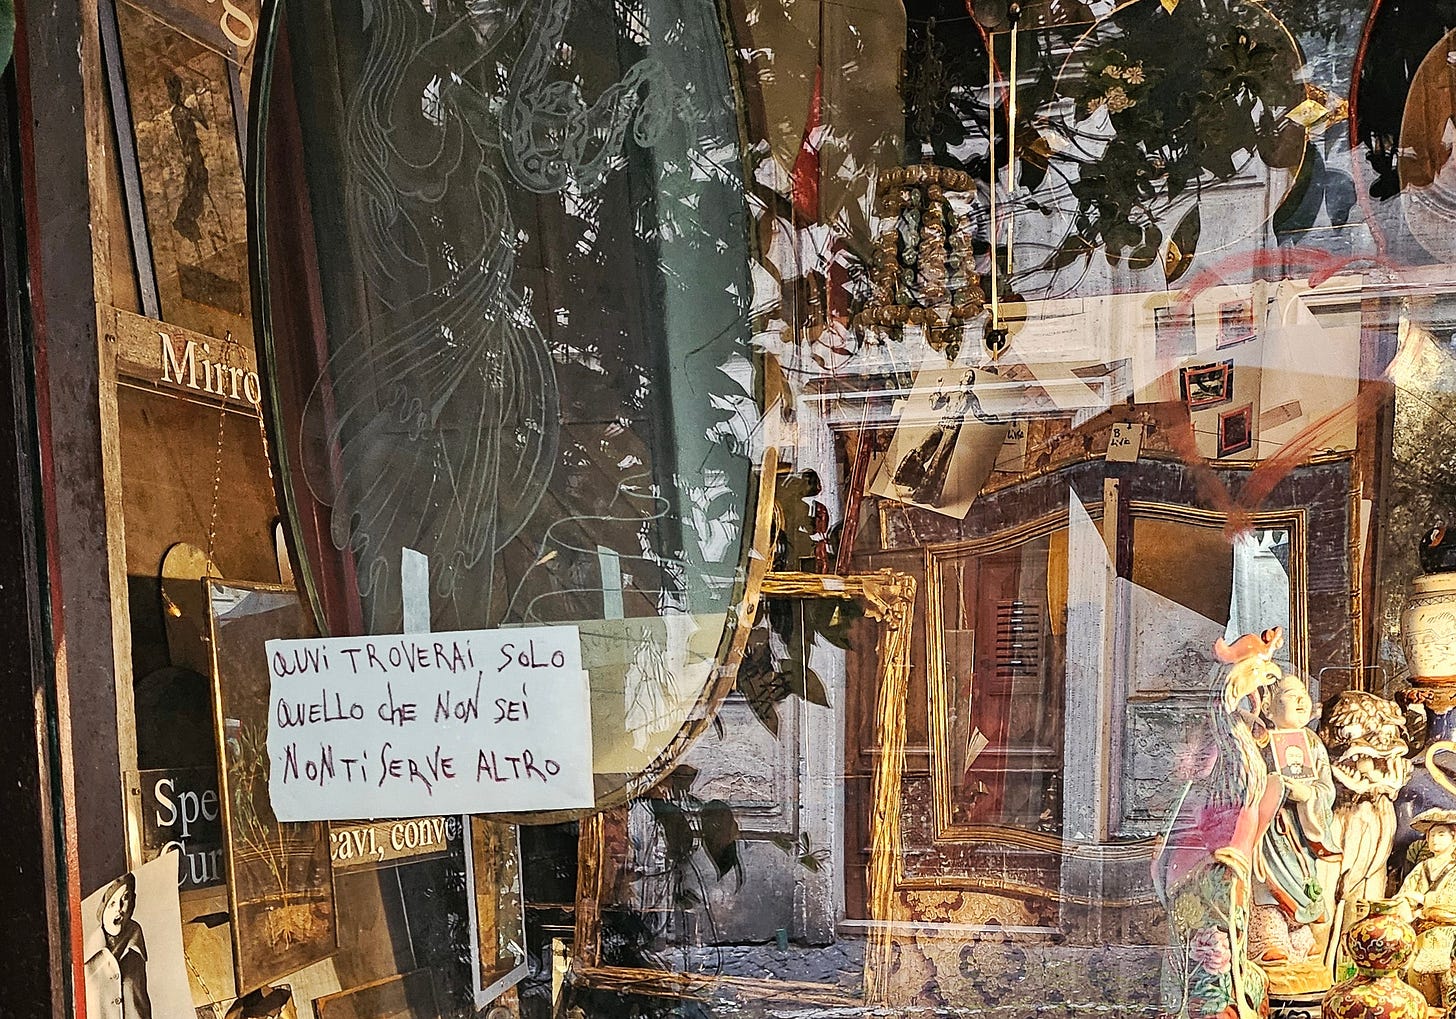 Mirro
QUIVI TROVERAI, SOLO
QUELLO chE NON SEI
NON Ti SERVE ALTRO
Spe
Cur
cavi, conve
B
LIVE